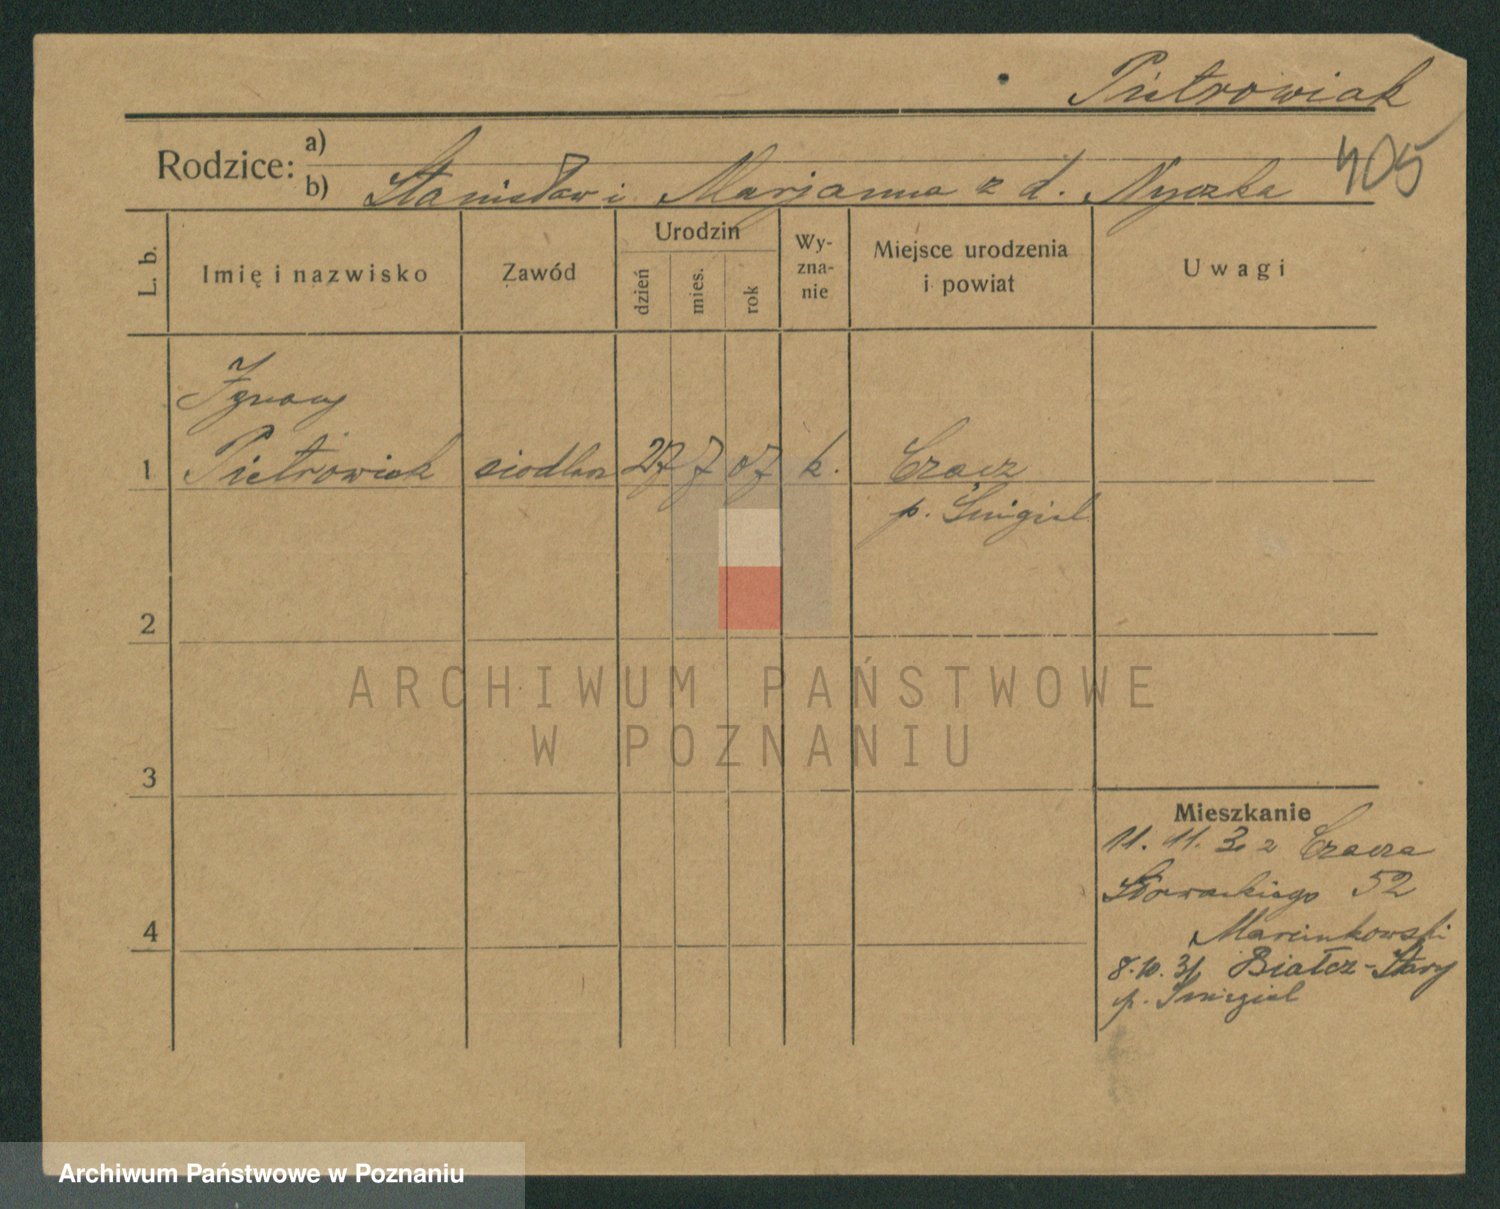 Pietrowiak
Rodzice: a)
b) Stanisław i Marjanna z d. Nyczka
405
L. b.
Imię i nazwisko
Zawód
Urodzin
dzień
mies.
rok
Wy-
zna-
nie
Miejsce urodzenia
i powiat
Uwagi
Ignacy
1 Pietrowiak siodlarz 27 7 07 k. Czacz
p. Śmigiel
2
ARCHIWUM PAŃSTWOWE
W POZNANIU
3
Mieszkanie
11. 11. 30 z Czacza
Słowackiego 52
Marcinkowski
4
8. 10. 31 Białcz-Stary
p. Śmigiel
Archiwum Państwowe w Poznaniu